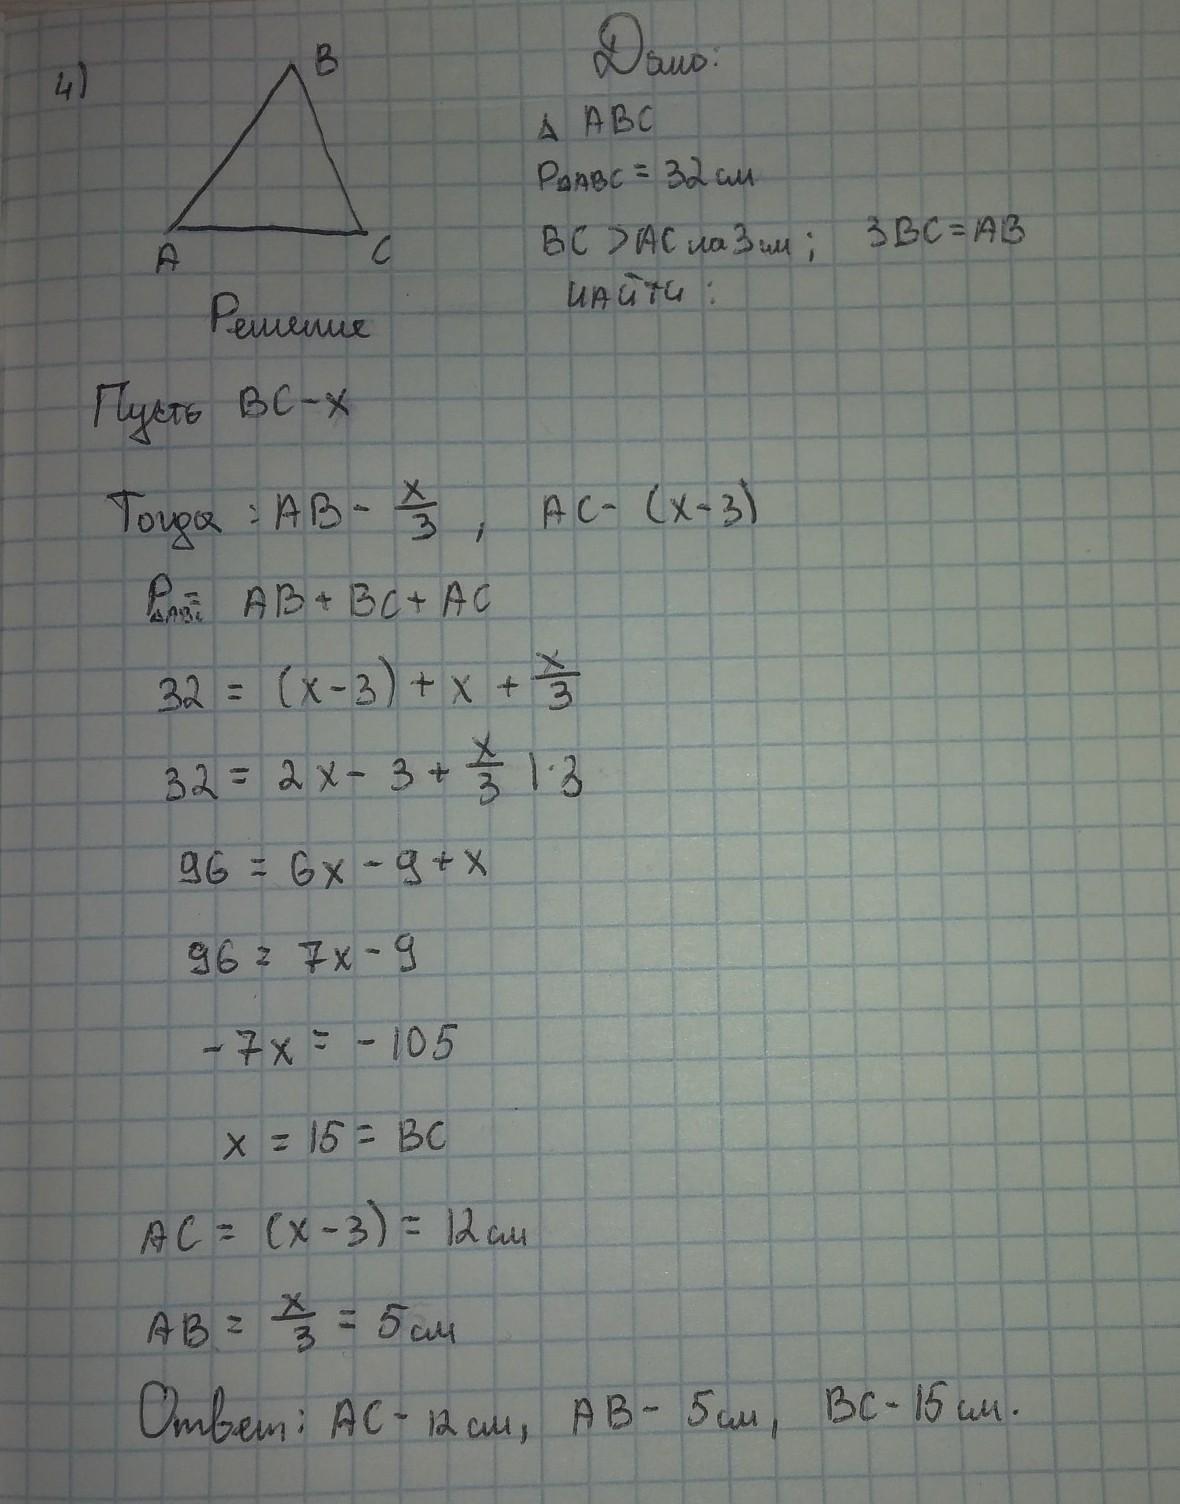 4)
B
A
C
Дано:
Δ ABC
PΔABC = 32 см
BC > AC на 3 см; 3BC = AB
НАЙТИ:
Решение
Пусть BC - x
Тогда: AB - x/3, AC - (x-3)
PΔABC = AB + BC + AC
32 = (x-3) + x + x/3
32 = 2x - 3 + x/3 |·3
96 = 6x - 9 + x
96 = 7x - 9
-7x = -105
x = 15 = BC
AC = (x-3) = 12 см
AB = x/3 = 5 см
Ответ: AC - 12 см, AB - 5 см, BC - 15 см.